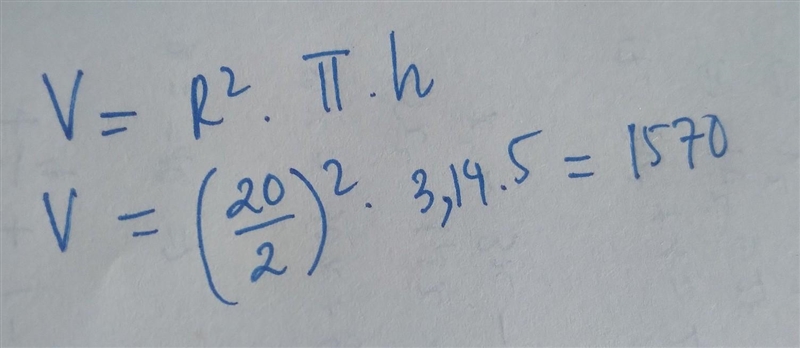 V = R². π. h
V = (20/2)². 3,14. 5 = 1570